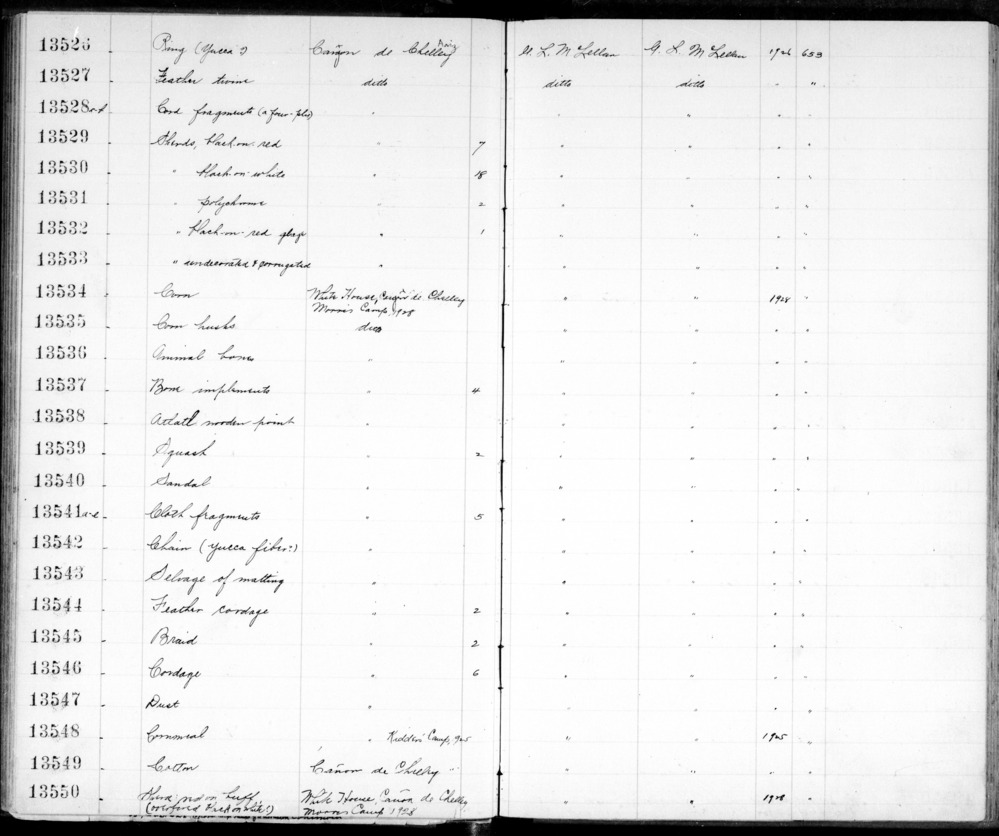 13526 Ring (Yucca?) Cañon de Chelley G. L. McLellan G. L. McLellan 1926 653
13527 Feather twine ditto ditto ditto " "
13528 a-f Cord fragments (a four-ply) " " " " "
13529 Sherds, black-on-red " 7 " " " "
13530 " black-on-white " 18 " " " "
13531 " polychrome " 2 " " " "
13532 " black-on-red glaze " 1 " " " "
13533 " undecorated & corrugated " " " " "
13534 Corn White House, Cañon de Chelley " " 1928 "
Morris Camp, 1928
13535 Corn husks ditto " " " "
13536 Animal bones " " " " "
13537 Bone implements " 4 " " " "
13538 Atlatl wooden point " " " " "
13539 Squash " 2 " " " "
13540 Sandal " " " " "
13541 a-e Cloth fragments " 5 " " " "
13542 Chain (yucca fiber?) " " " " "
13543 Selvage of matting " " " " "
13544 Feather cordage " 2 " " " "
13545 Braid " 2 " " " "
13546 Cordage " 6 " " " "
13547 Dust " " " " "
13548 Cornmeal " Kidder's Camp, 1925 " " 1925 "
13549 Cotton Cañon de Chelley " " " " "
13550 on buff White House, Cañon de Chelley " " 1928 "
Morris Camp 1928